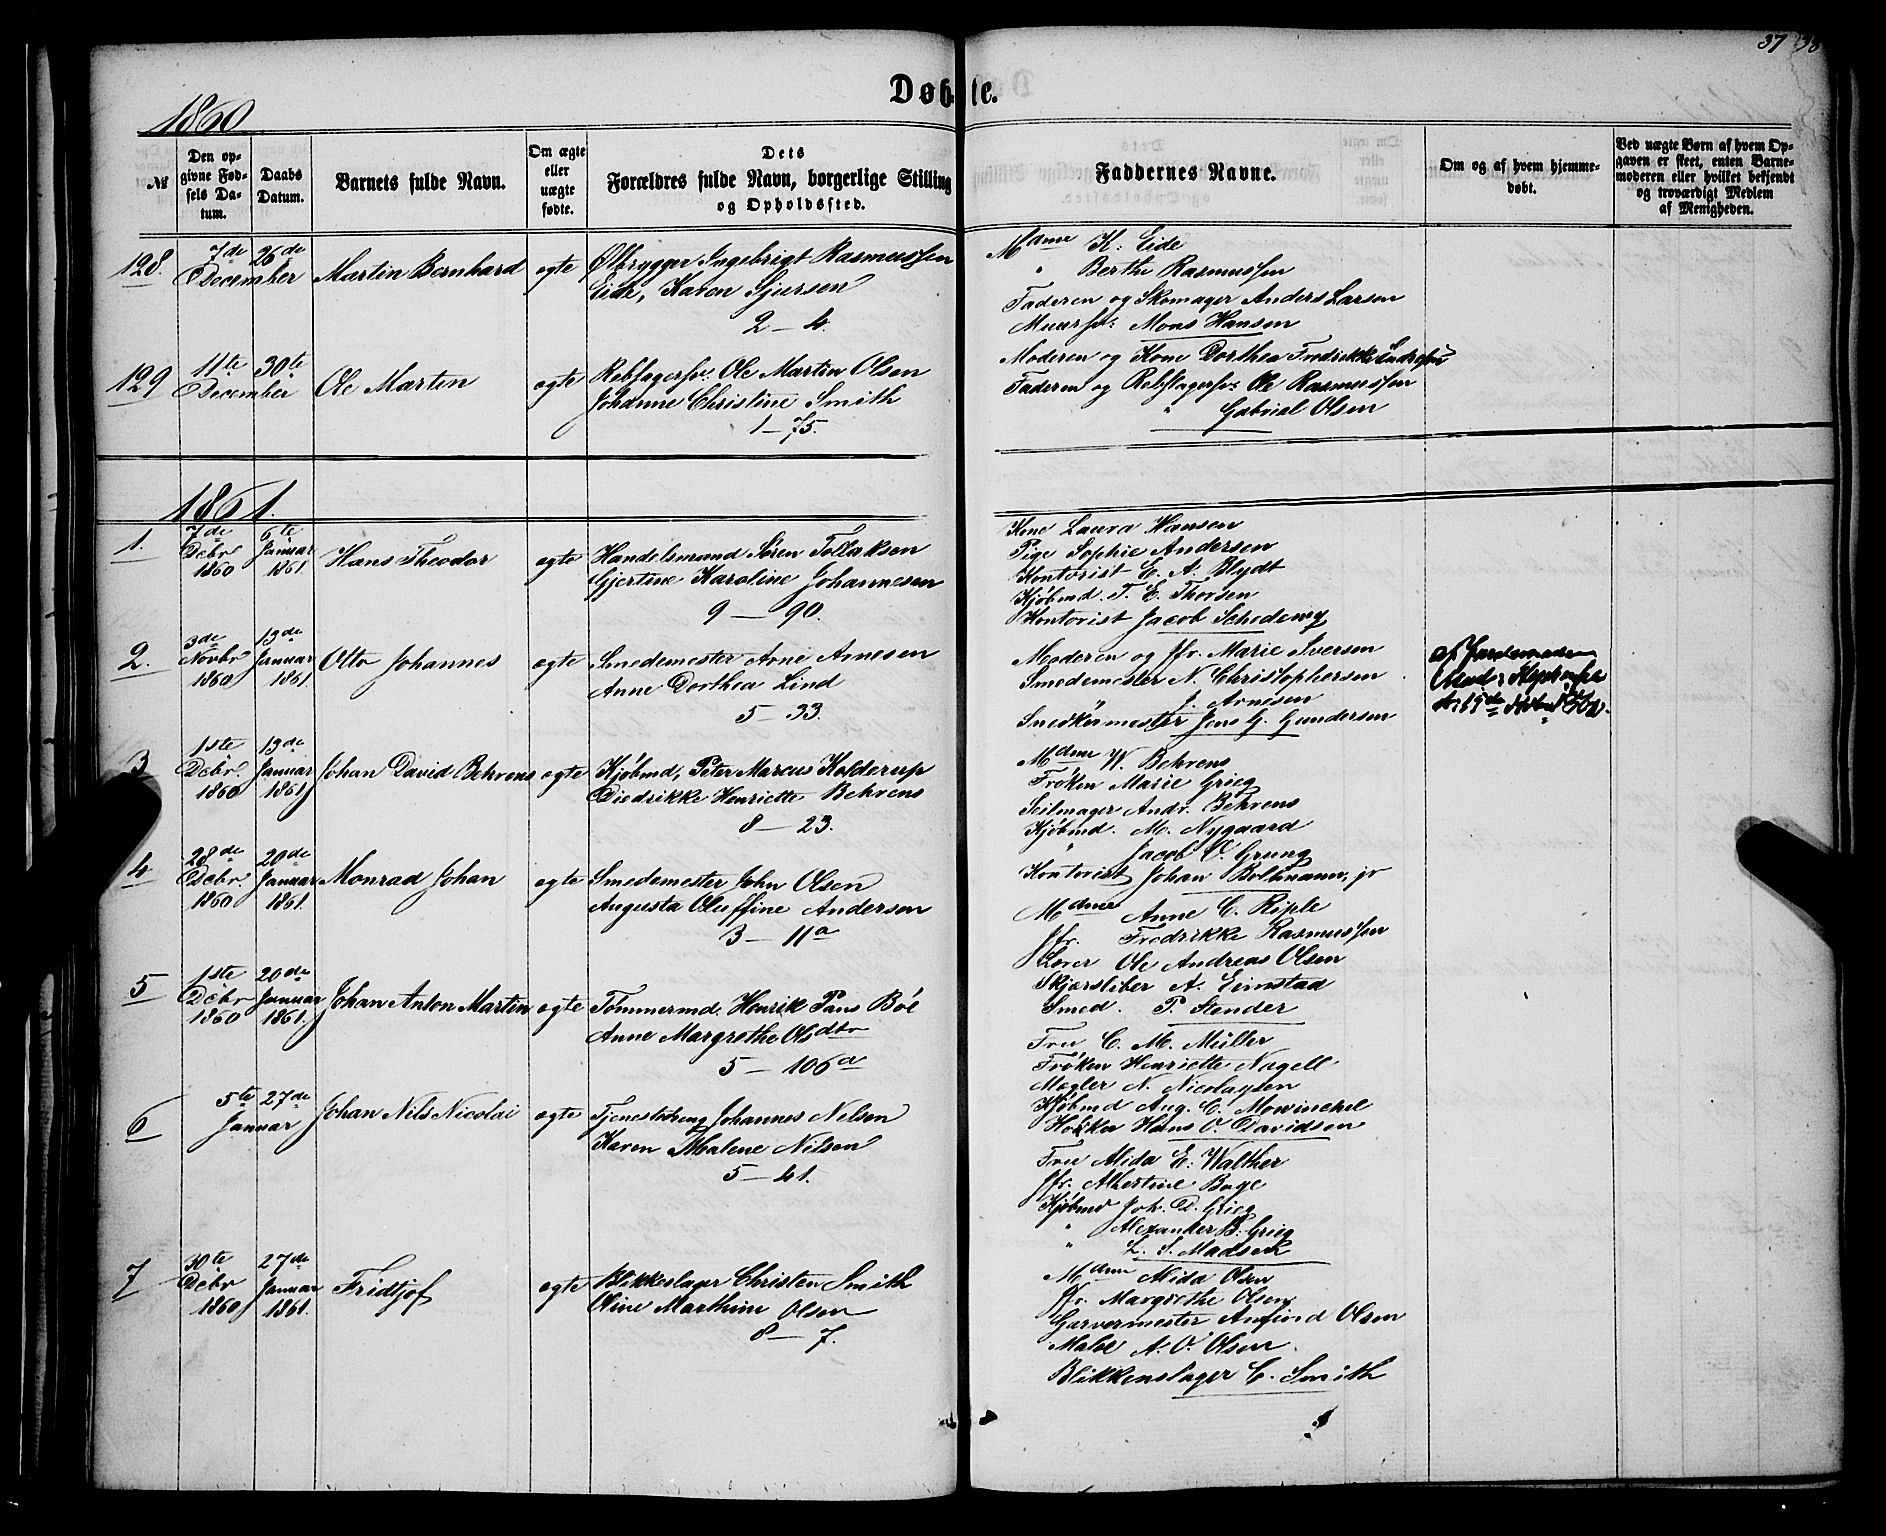 37 38
Døbte.
1860
№
Den opgivne Fødsels Datum.
Daabs Datum.
Barnets fulde Navn.
Om ægte eller uægte fødte.
Dets Forældres fulde Navn, borgerlige Stilling og Opholdssted.
Faddernes Navne.
Om og af hvem hjemmedøbt.
Ved uægte Børn af hvem Opgaven er skeet, enten Barnemoderen eller hvilket bekjendt og troværdigt Medlem af Menigheden.
128. 7de December 26de Martin Bernhard ægte Ølbrygger Ingebrigt Rasmussen
Eide, Karen Sjursen
2 – 4.
Mdme K: Eide
" Berthe Rasmussen
Faderen og Skomager Anders Larsen
Muursv: Mons Hansen
129 11te December 30te Ole Martin ægte Rebslagersv: Ole Martin Olsen
Johanne Christine Smith
1 – 75.
Moderen og Kone Dorthea Fredrikke
Faderen og Rebslagersv: Ole Rasmussen
" Gabriel Olsen
1861.
1. 7de Debr 1860 6te Januar 1861 Hans Theodor ægte Handelsmand Søren Tollaksen
Gjertine Karoline Johannesen
9 – 90.
Kone Laura Hansen
Pige Sophie Andersen
Kontorist C. A. Blydt
Kjøbmd. T. E. Thorsen
Kontorist Jacob
2. 3de Novbr 1860 13de Januar 1861. Otto Johannes ægte Smedemester Arne Arnesen
Anne Dorthea Lind
5 – 33.
Moderen og Jfr. Marie Iversen
Smedemester N. Christophersen
" J. Arnesen
Snedkermester Jens G. Gundersen
af Jordemoder
3 1ste Debr. 1860 13de Januar 1861 Johan David Behrens ægte Kjøbmd, Peter Marcus Kolderup
Diedrikke Henriette Behrens
8 – 23.
Mdme W. Behrens
Frøken Marie Grieg
Seilmager Andr. Behrens
Kjøbmd. M. Nygaard
" Jacob V. Grung
Kontorist Johan Boltmann, jr
4 28de Debr. 1860 20de Januar 1861. Monrad Johan ægte Smedemester John Olsen
Augusta Oluffine Andersen
3 – 11a
Mdme Anne C. Riple
Jfr. Fredrikke Rasmussen
Lærer Ole Andreas Olsen
Skjærsliber A. Eimstad
Smed. P. Stender
5 1ste Debr 1860 20de Januar 1861. Johan Anton Martin ægte Tømmermd. Henrik Pans Böe
Anne Margrethe Olsdtr
5 – 106a
Fru C. M. Müller
Frøken Henriette Nagell
Mægler N. Nicolaysen
Kjøbmd Aug. C. Mowinckel
Høkker Hans O. Davidsen
6 5te Januar 27de Johan Nils Nicolai ægte Tjenestdreng Johannes Nelsen
Karen Malene Nilsen
5 – 41.
Fru Alida E. Walther
Jfr. Albertine Bøge
Kjøbmd Joh. D. Grieg
" Alexander B. Grieg
" L. S. Madsen
7 30te Debr 1860 27de Januar 1861. Fridtjof ægte Blikkeslager Christen Smith
Oline Marthine Olsen
8 – 7.
Mdme Alida Olsen
Jfr. Margrethe Olsen
Garvermester Amund Olsen
Maler A. O. Olsen.
Blikkenslager C. Smith